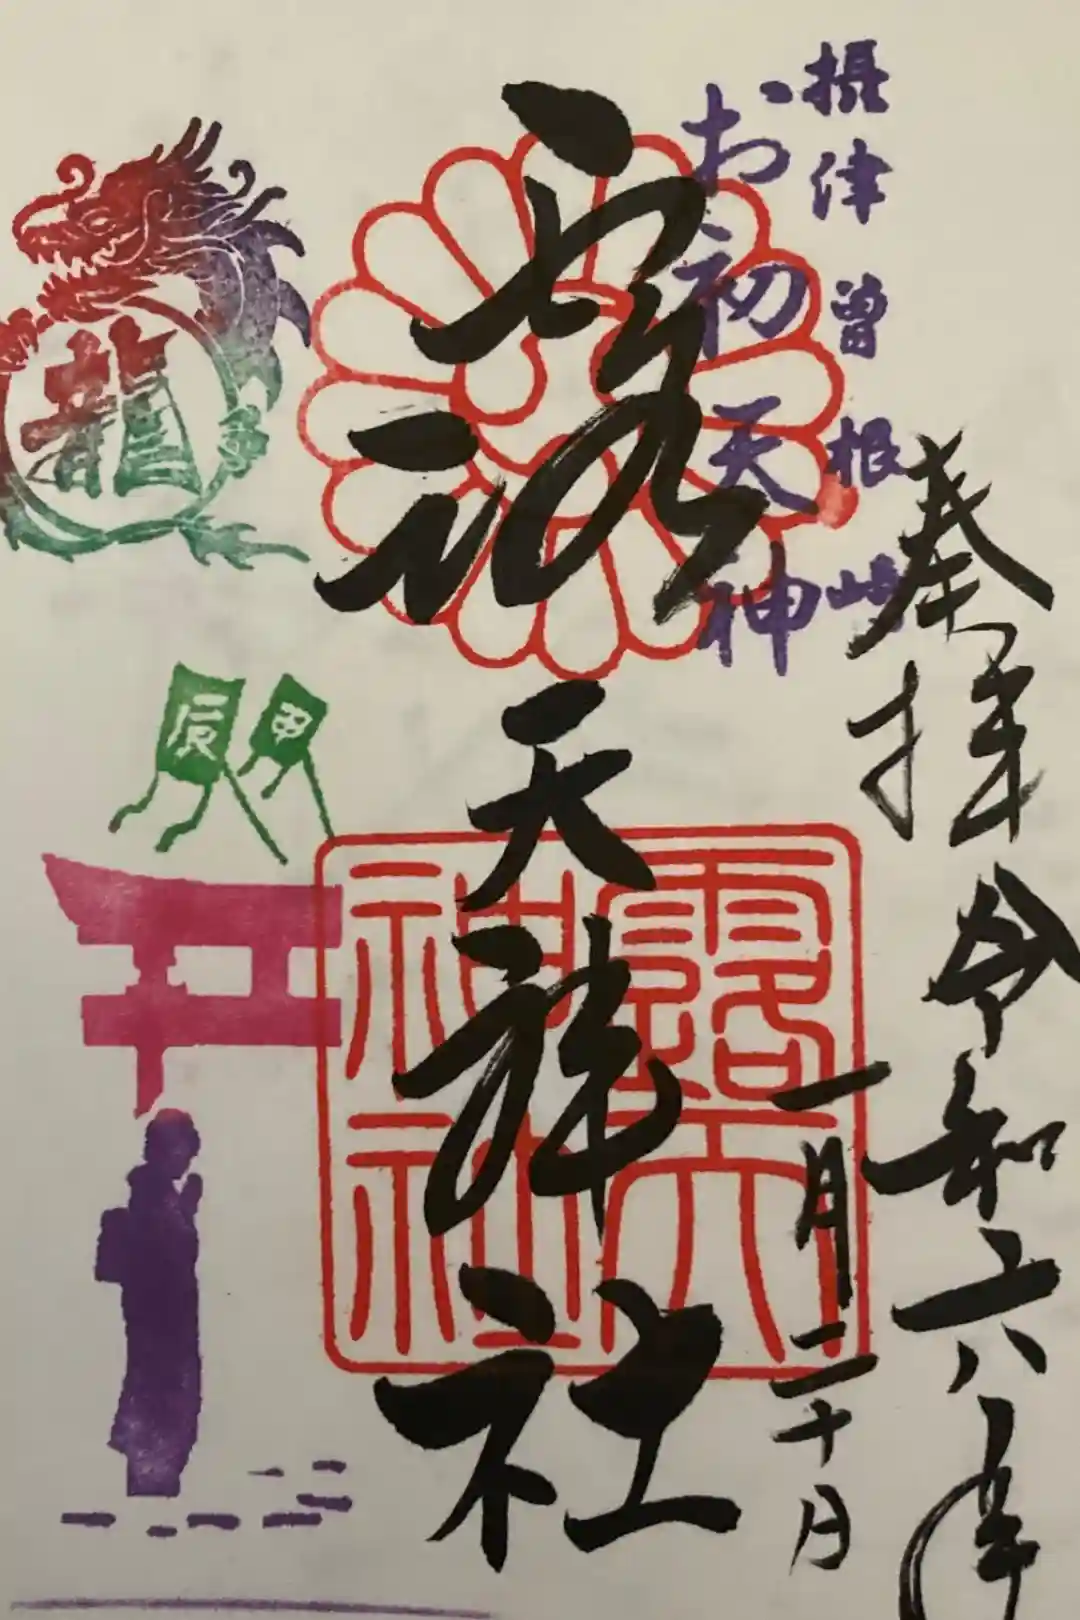 摂津 曽根崎
お初天神
奉拝 令和六年
一月二十日
露天神社
露天神社
龍
甲
辰